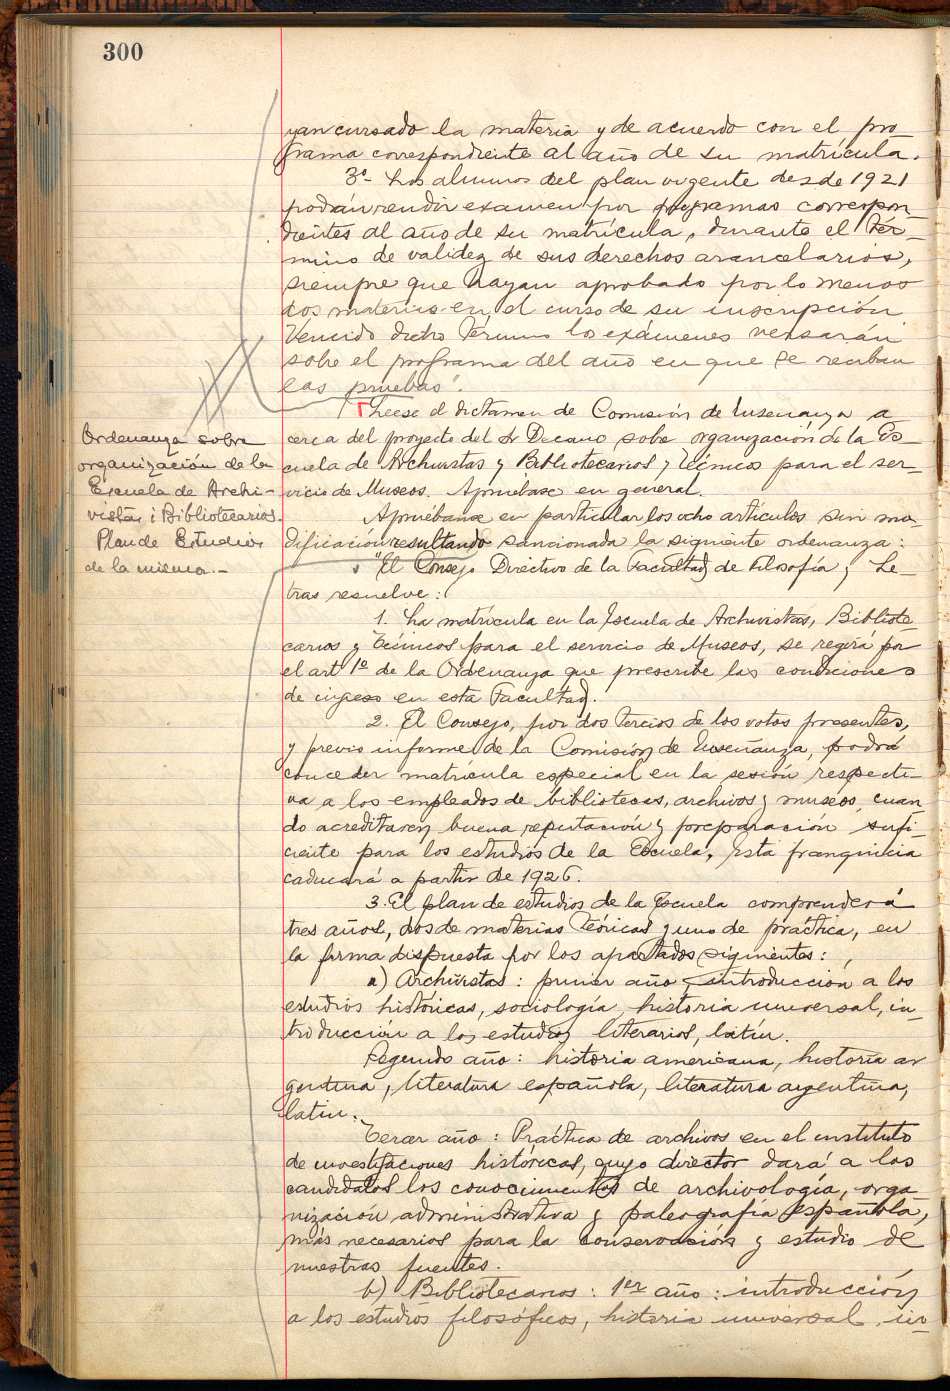 300
yan cursado la materia y de acuerdo con el pro
grama correspondiente al año de su matrícula.
3º- Los alumnos del plan vigente desde 1921
podrán rendir examen por programas correspon-
dientes al año de su matrícula, durante el tér-
mino de validez de sus derechos arancelarios,
siempre que hayan aprobado por lo menos
dos materias en el curso de su inscripción
Vencido dicho término los exámenes versarán
sobre el programa del año en que se reciban
las pruebas".
Léese el dictamen de Comisión de Enseñanza a
cerca del proyecto del Sr Decano sobe organización de la Es-
cuela de Archivistas y Bibliotecarios y Técnicos para el ser-
vicio de Museos. Apruébase en general.
Apruébanse en particular los ocho artículos sin mo-
dificación resultando sancionada la siguiente ordenanza:
"El Consejo Directivo de la Facultad de Filosofía y Le-
tras resuelve:
1. La matrícula en la Escuela de Archivistas, Bibliote-
carios y Técnicos para el servicio de Museos, se regirá por
el art 1º de la Ordenanza que prescribe las condiciones
de ingreso en esta Facultad.
2. El Consejo, por dos tercios de los votos presentes,
y previo informe de la Comisión de Enseñanza, podrá
conceder matrícula especial en la sesión respecti-
va a los empleados de bibliotecas, archivos y museos, cuan
do acreditaren buena reputación y preparación sufi-
ciente para los estudios de la Escuela, Esta franquicia
caducará a partir de 1926.
3. El plan de estudios de la Escuela comprenderá
tres años, dos de materias teóricas y uno de práctica, en
la forma dispuesta por los apartados siguientes:
a) Archivistas: primer año, introducción a los
estudios históricas, sociología, historia universal, in-
troducción a los estudios literarios, latín.
Segundo año: historia americana, historia ar
gentina, literatura española, literatura argentina,
latín.
Tercer año: Práctica de archivos en el instituto
de investigaciones históricas, cuyo director dará a los
candidatos los conocimientos de archivología, orga
nización administrativa y paleografía española,
más necesarios para la conservación y estudio de
nuestras fuentes.
b) Bibliotecarios: 1er año: introducción
a los estudios filosóficos, historia universal, in-
Ordenanza sobre
organización de la
Escuela de Archi-
vistas i Bibliotecarios.
Plan de Estudios
de la misma.-